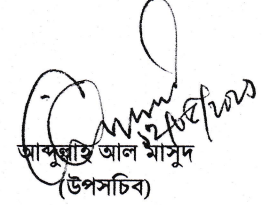 আব্দুল্লাহ আল মাসুদ
(উপসচিব)